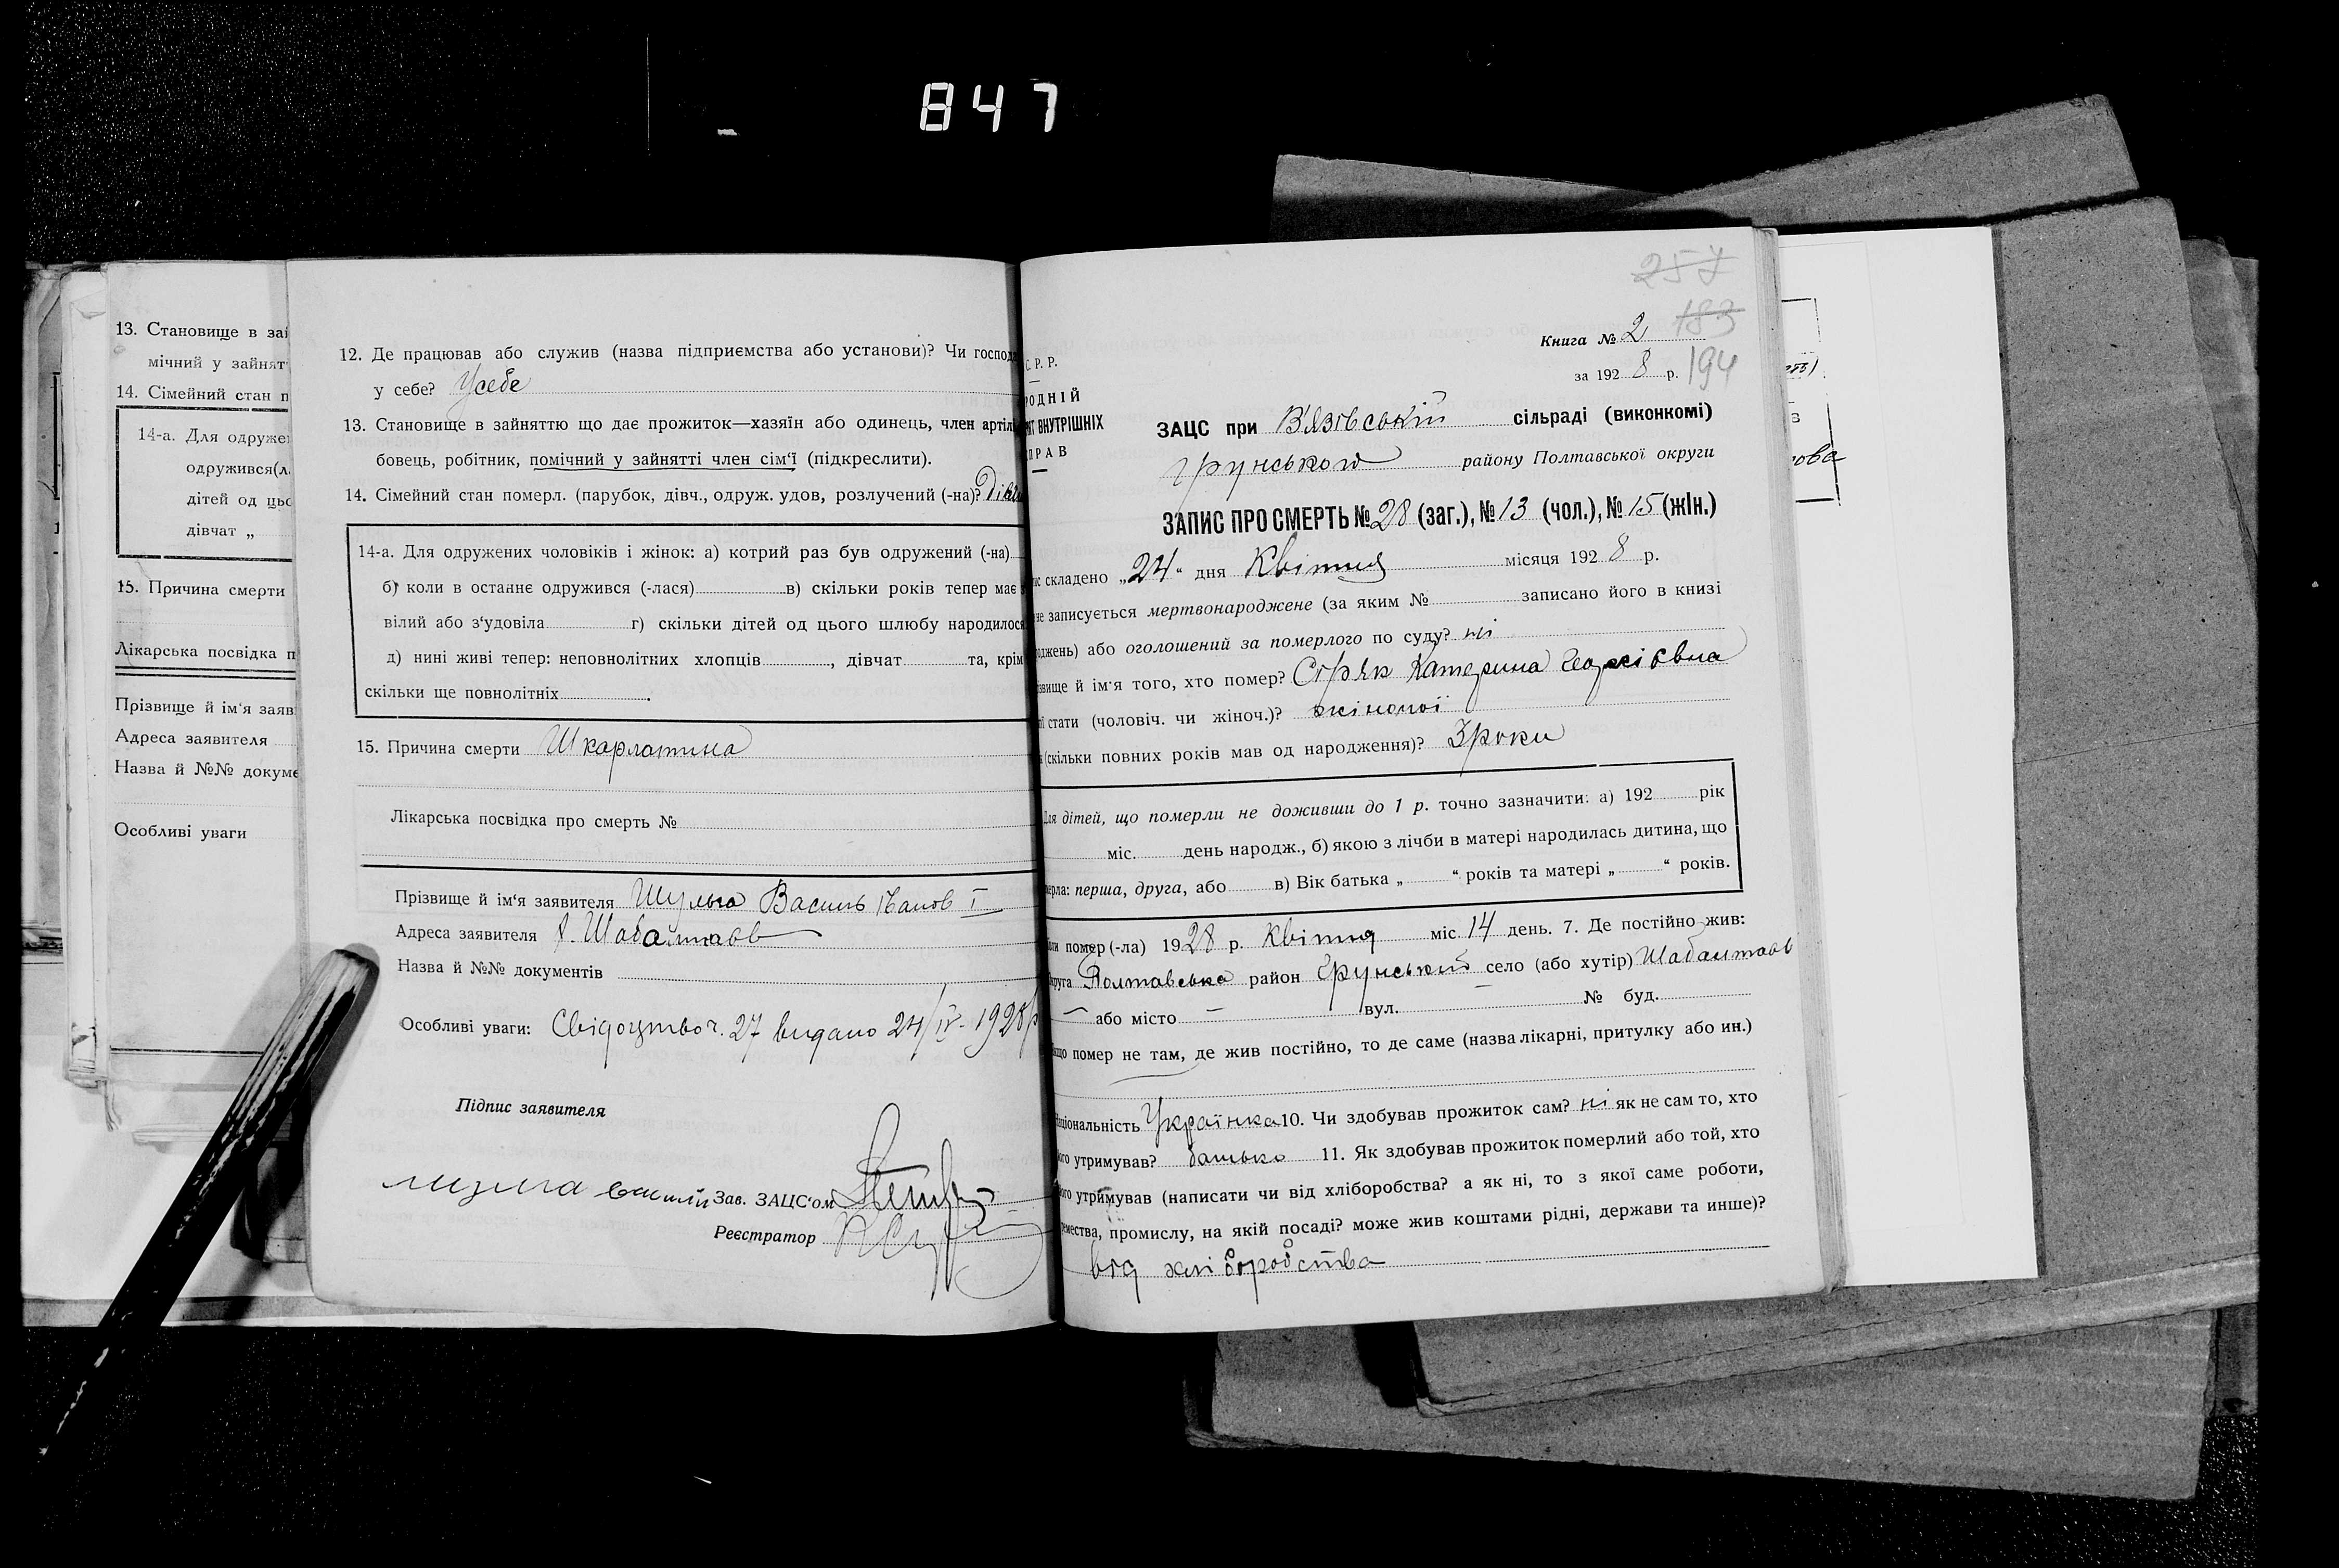 847
13. Становище в зай
мічний у зайнят
14. Сімейний стан п
14-а. Для одружен
одружився(л
дітей од цьо
дівчат „
15. Причина смерти
Лікарська посвідка п
Прізвище й ім'я заяв
Адреса заявителя
Назва й №№ докуме
Особливі уваги
12. Де працював або служив (назва підприємства або установи)? Чи господ
у себе? Усебе
13. Становище в зайняттю що дає прожиток—хазяїн або одинець, член артіл
бовець, робітник, помічний у зайнятті член сім'ї (підкреслити).
14. Сімейний стан померл. (парубок, дівч., одруж. удов, розлучений (-на)?
14-а. Для одружених чоловіків і жінок: а) котрий раз був одружений (-на)
б) коли в останнє одружився (-лася) в) скільки років тепер має
вілий або з'удовіла г) скільки дітей од цього шлюбу народилося
д) нині живі тепер: неповнолітних хлопців , дівчат та, крім
скільки ще повнолітніх .
15. Причина смерти Шкарлатина
Лікарська посвідка про смерть №
Прізвище й ім'я заявителя Шульга Василь Іванов I
Адреса заявителя
Назва й №№ документів
Особливі уваги: Свідоцтво ч. 27 видано 24/IV-1928р
Підпис заявителя
Зав. ЗАЦС'ом
Реєстратор
257
183
Книга № 2
194
за 1928 р.
С. Р. Р.
РОДНІЙ
АТ ВНУТРІШНІХ
ПРАВ
ЗАЦС при В'язівській сільраді (виконкомі)
Грунського району Полтавської округи
ЗАПИС ПРО СМЕРТЬ № 28 (заг.), № 13 (чол.), № 15 (жін.)
ис складено „24“ дня Квітня місяця 1928 р.
не записується мертвонароджене (за яким № записано його в книзі
оджень) або оголошений за померлого по суду? ні
звище й ім'я того, хто помер? Катерина
ї стати (чоловіч. чи жіноч.)? жіночої
(скільки повних років мав од народження)? 3 роки
Для дітей, що померли не доживши до 1 р. точно зазначити: а) 192 рік
міс. день народж., б) якою з лічби в матері народилась дитина, що
мерла: перша, друга, або в) Вік батька „ “ років та матері „ “ років.
оли помер (-ла) 1928 р. Квітня міс 14 день. 7. Де постійно жив:
круга Полтавська район Грунський село (або хутір)
— або місто — вул. — № буд.
кщо помер не там, де жив постійно, то де саме (назва лікарні, притулку або ин.)
аціональність Українка 10. Чи здобував прожиток сам? ні як не сам то, хто
ого утримував? батько 11. Як здобував прожиток померлий або той, хто
ого утримував (написати чи від хліборобства? а як ні, то з якої саме роботи,
емества, промислу, на якій посаді? може жив коштами рідні, держави та инше)?
від хліборобства